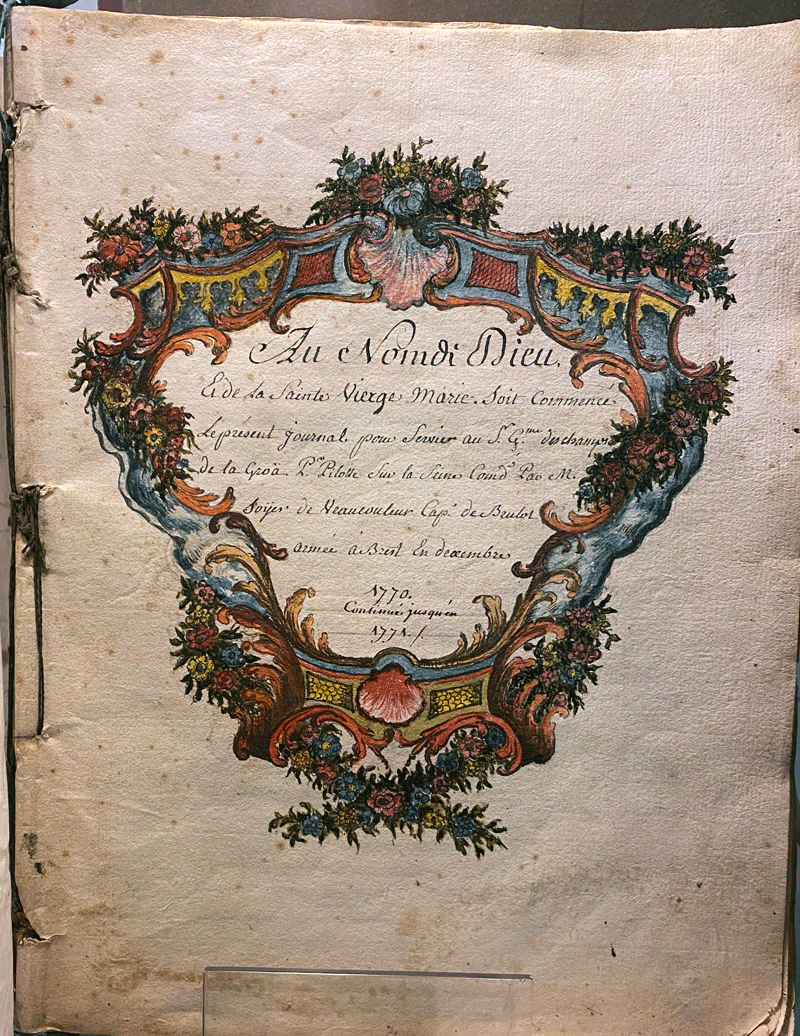 Au Nom di Dieu,
Et de La Sainte Vierge Marie. Soit Commencé
Le présent journal. pour Servir au S.r G.me deschamps
de la Groä. P.er Pilotte Sur la Seine Comd.é Par M.
Soÿer de Veaucouleur Cap.e de Brulot
armée à Brest En decembre
1770.
Continué jusqu'en
1771./.